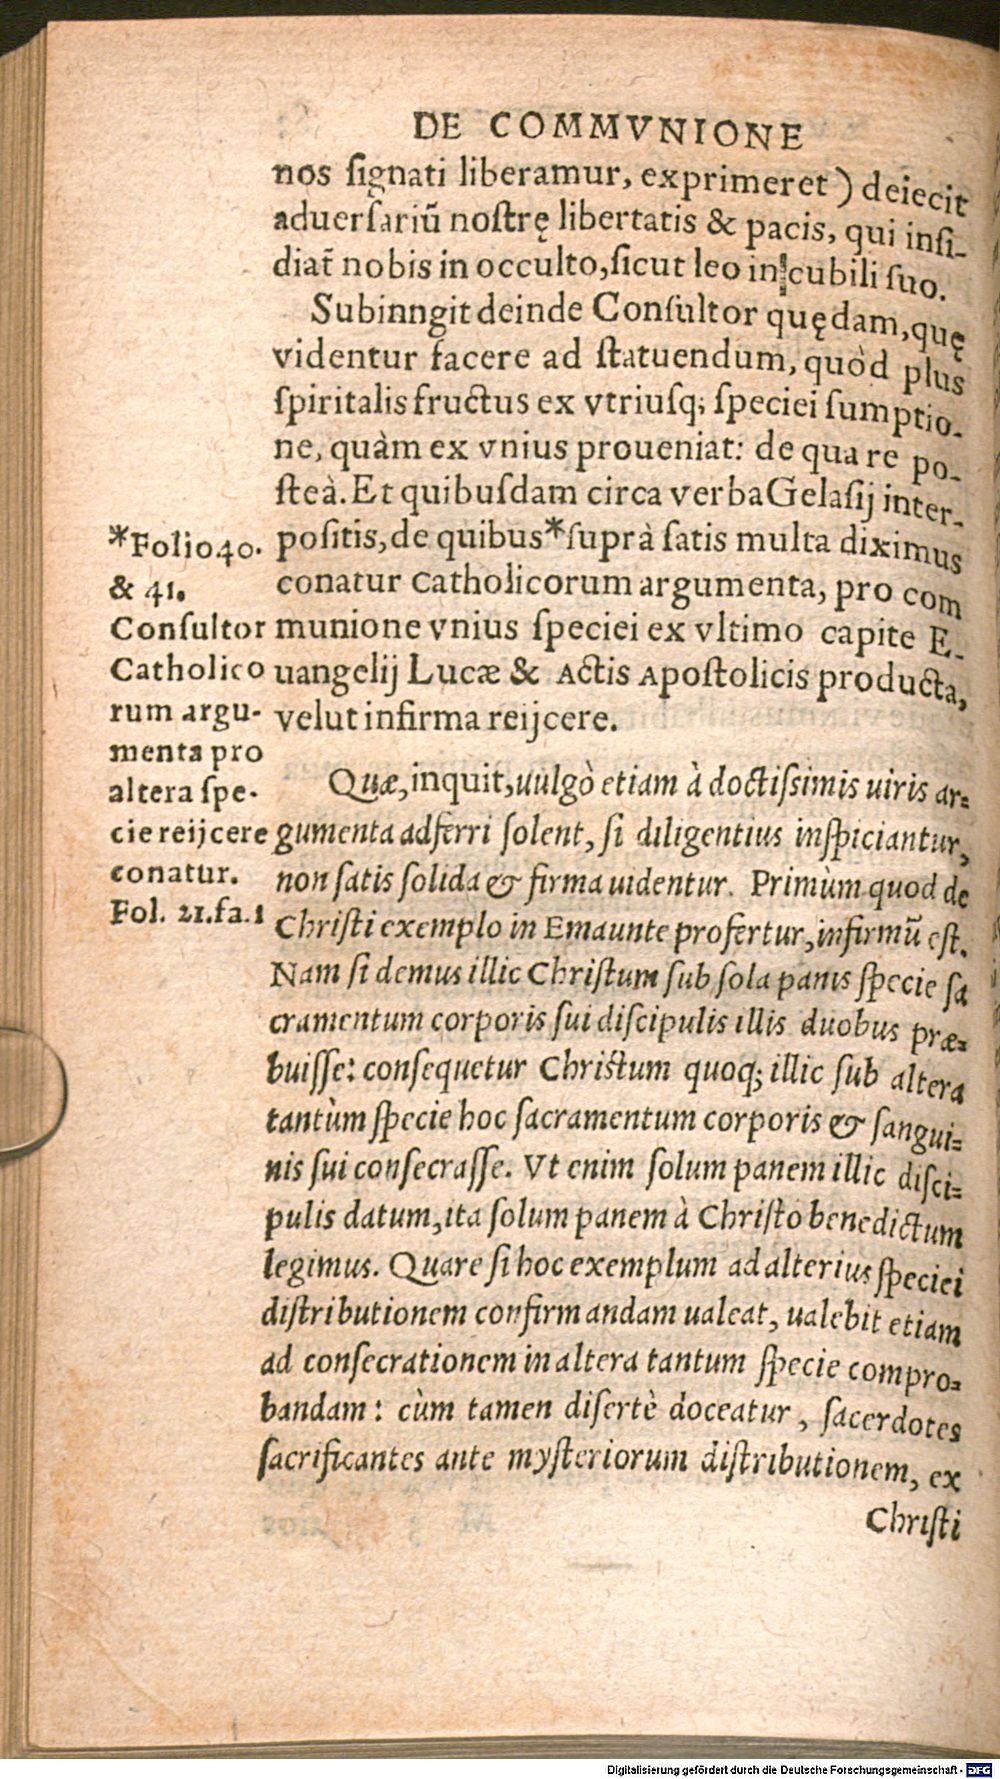 DE COMMVNIONE
nos ſignati liberamur, exprimeret) deiecit
aduerſariū noſtrę libertatis & pacis, qui inſi-
diat̄ nobis in occulto, ſicut leo in cubili ſuo.
Subinngit deinde Conſultor quędam, quę
videntur facere ad ſtatuendum, quòd plus
ſpiritalis fructus ex vtriuſq; ſpeciei ſumptio-
ne, quàm ex vnius proueniat: de qua re po-
ſteà. Et quibuſdam circa verba Gelaſij inter-
poſitis, de quibus *ſuprà ſatis multa diximus
conatur Catholicorum argumenta, pro com
munione vnius ſpeciei ex vltimo capite E-
uangelij Lucæ & Actis Apoſtolicis producta,
velut infirma reijcere.
*Folio 40.
& 41.
Conſultor
Catholico
rum argu-
menta pro
altera ſpe-
cie reijcere
conatur.
Fol. 21. fa. 1
Quæ, inquit, uulgò etiam à doctiſsimis uiris ar-
gumenta adferri ſolent, ſi diligentius inſpiciantur,
non ſatis ſolida & firma uidentur. Primùm quod de
Chriſti exemplo in Emaunte profertur, infirmū eſt.
Nam ſi demus illic Chriſtum ſub ſola panis ſpecie ſa
cramentum corporis ſui diſcipulis illis duobus præ-
buiſſe: conſequetur Chriſtum quoq; illic ſub altera
tantùm ſpecie hoc ſacramentum corporis & ſangui-
nis ſui conſecraſſe. Vt enim ſolum panem illic diſci-
pulis datum, ita ſolum panem à Chriſto benedictum
legimus. Quare ſi hoc exemplum ad alterius ſpeciei
diſtributionem confirmandam ualeat, ualebit etiam
ad conſecrationem in altera tantum ſpecie compro-
bandam: cùm tamen diſertè doceatur, ſacerdotes
ſacrificantes ante myſteriorum diſtributionem, ex
Chriſti
Digitalisierung gefördert durch die Deutsche Forschungsgemeinschaft - DFG